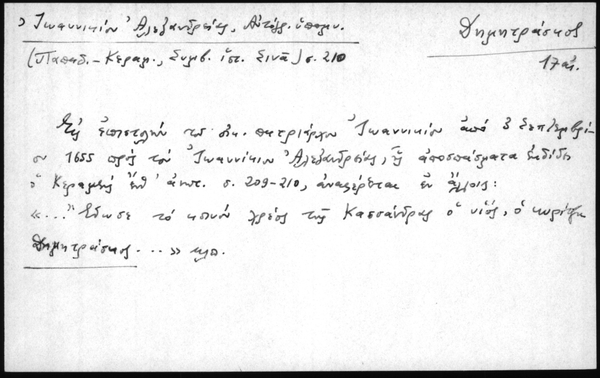 Ἰωαννικίου Ἀλεξανδρείας, Αὐτόγρ. ὑπομν.
Δημητράσκος
(Παπαδ.-Κεραμ., Συμβ. ἱστ. Σινᾶ) σ. 210
17 αἰ.
Ἐν ἐπιστολῇ τοῦ οἰκ. πατριάρχου Ἰωαννικίου ἀπό 3 Σεπτεμβρί-
ου 1655 πρός τόν Ἰωαννίκιον Ἀλεξανδρείας, ἧς ἀποσπάσματα ἐκδίδει
ὁ Κεραμεύς ἔνθ' ἀνωτ. σ. 209-210, ἀναφέρεται ἐν ἄλλοις:
«...Ἔδωσε τό κοινόν χρέος τῆς Κασσάνδρας ὁ υἱός, ὁ
Δημητράσκος ...» κλπ.